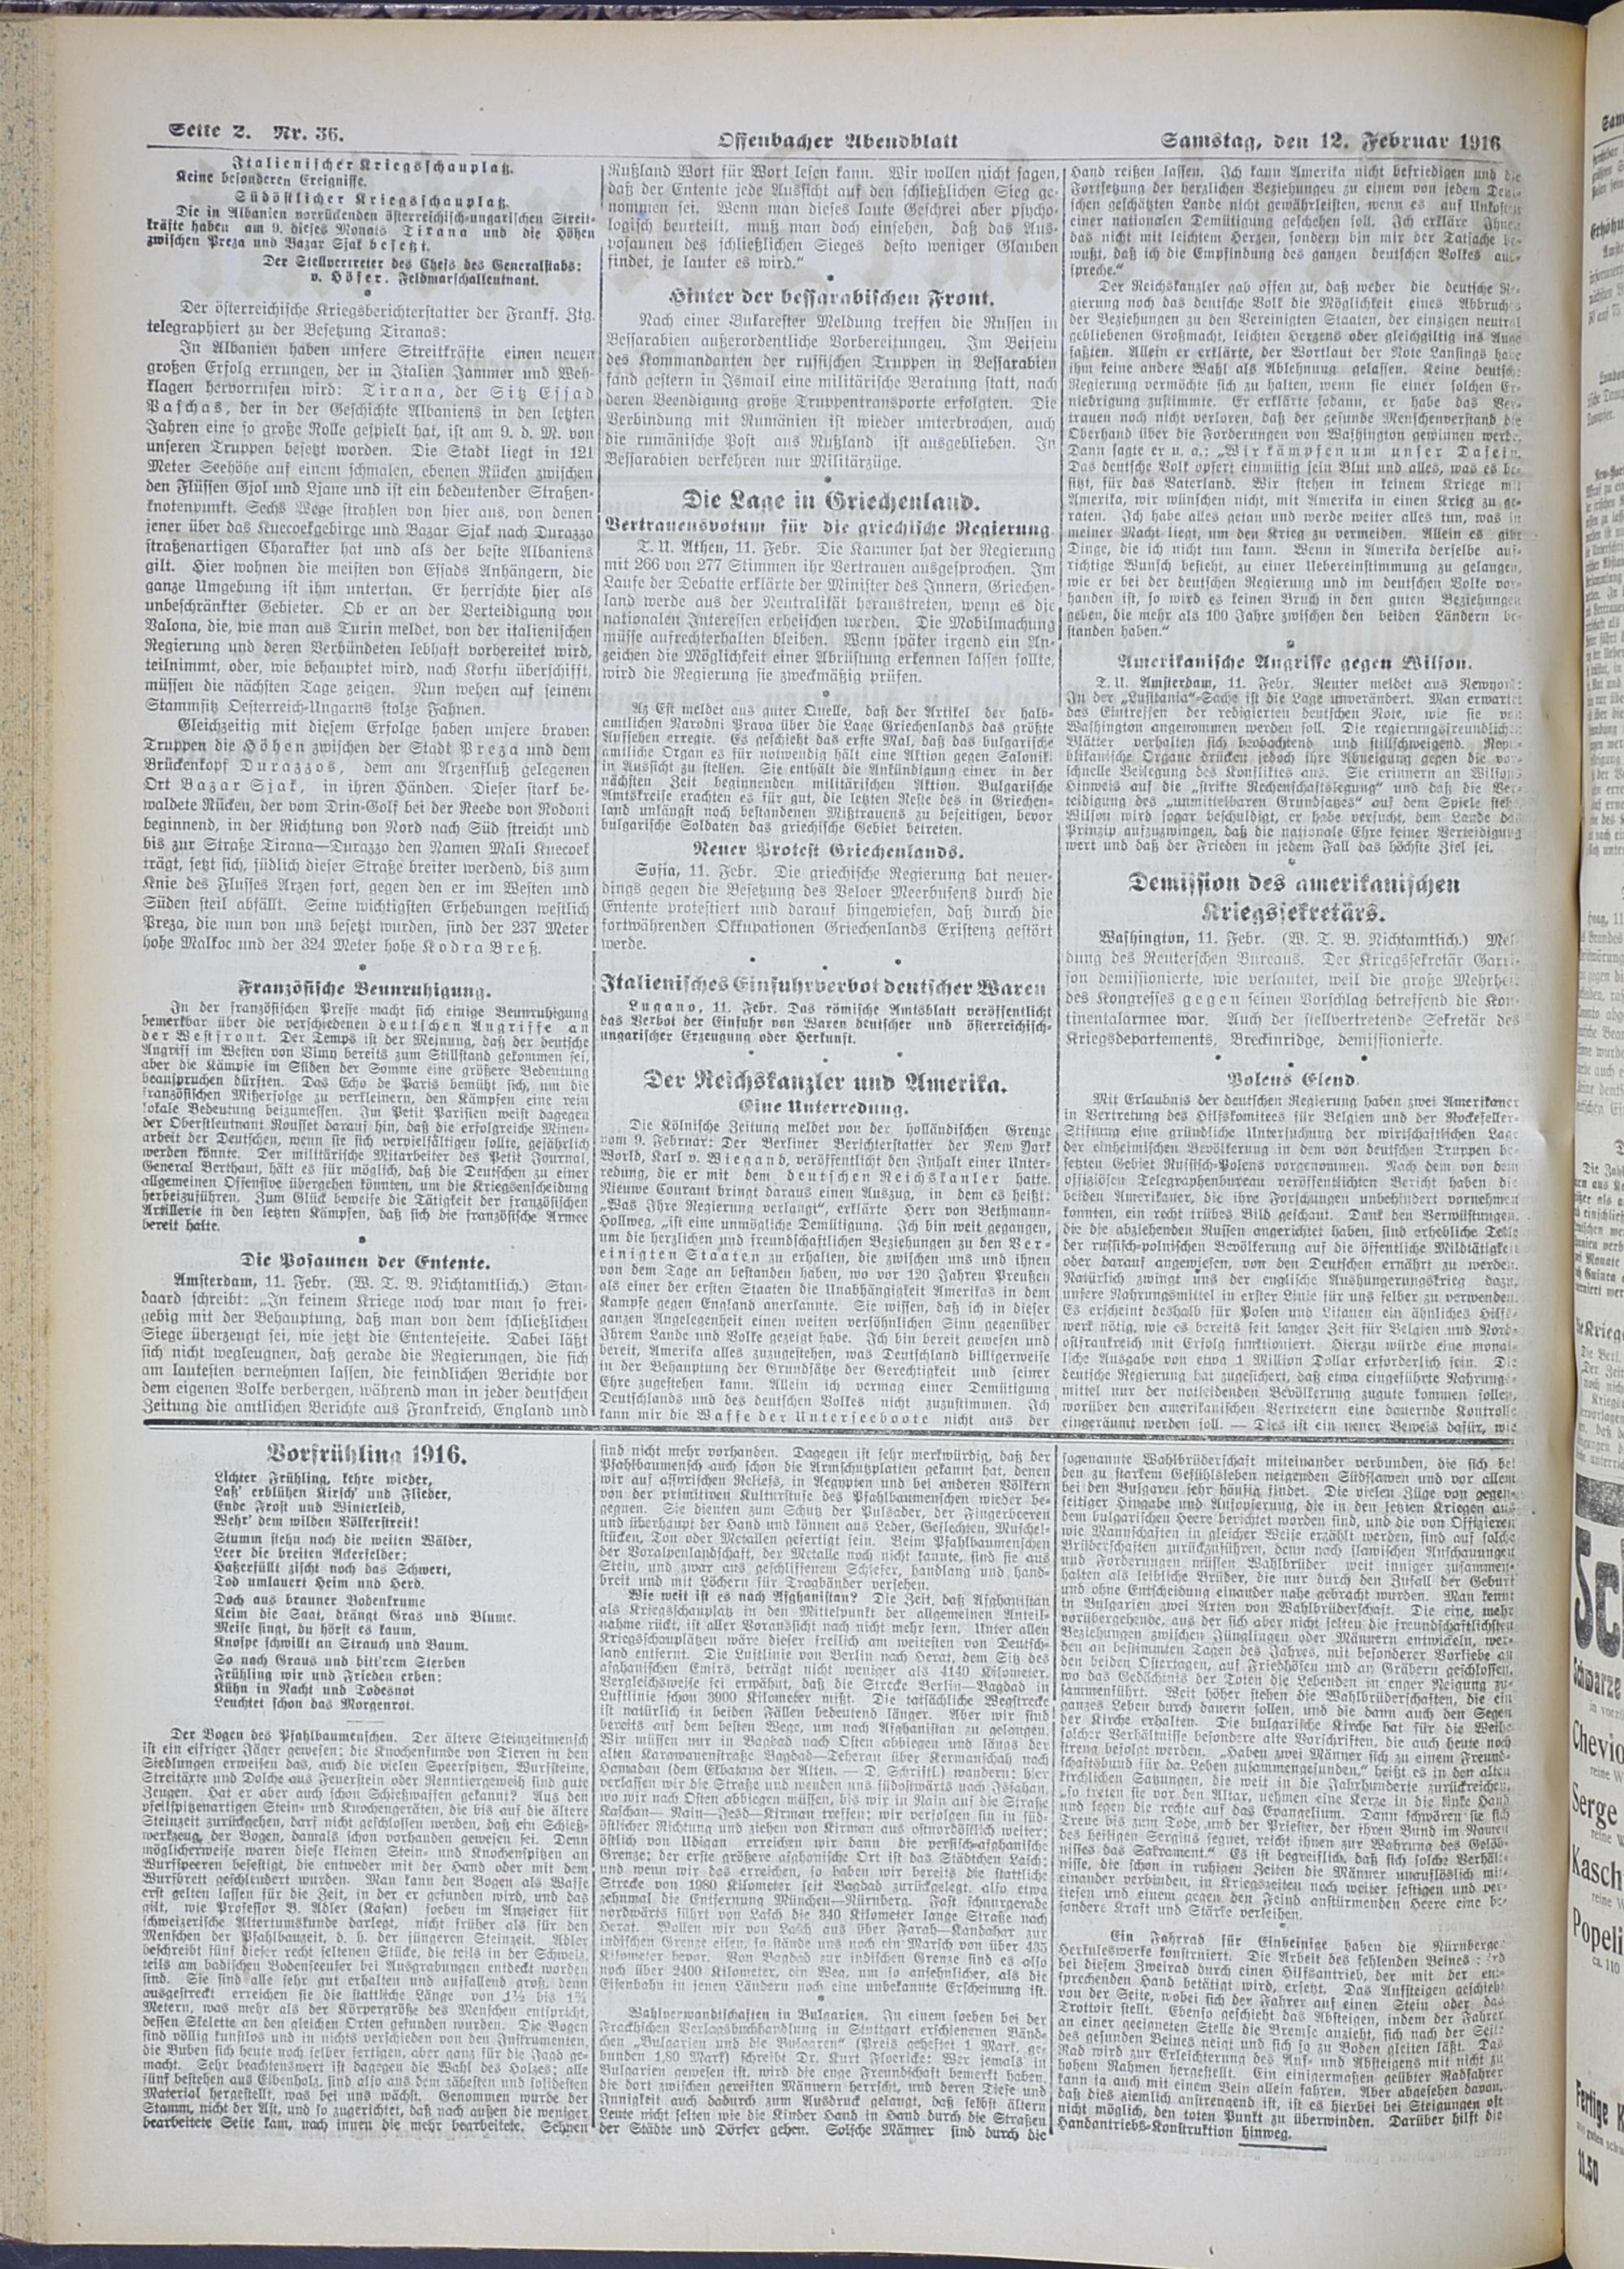 Seite 2. Nr. 36.
Offenbacher Abendblatt
Samstag, den 12. Februar 1916
Italienischer Kriegsschauplatz.
Keine besonderen Ereignisse.
Südöstlicher Kriegsschauplatz.
Die in Albanien vorrückenden österreichisch-ungarischen Streit-
kräfte haben am 9. dieses Monats Tirana und die Höhen
zwischen Preza und Bazar Sjak besetzt.
Der Stellvertreter des Chefs des Generalstabs:
v. Höfer. Feldmarschalleutnant.
*
Der österreichische Kriegsberichterstatter der Frankf. Ztg.
telegraphiert zu der Besetzung Tiranas:
In Albanien haben unsere Streitkräfte einen neuen
großen Erfolg errungen, der in Italien Jammer und Weh-
klagen hervorrufen wird: Tirana, der Sitz Essad
Paschas, der in der Geschichte Albaniens in den letzten
Jahren eine so große Rolle gespielt hat, ist am 9. d. M. von
unseren Truppen besetzt worden. Die Stadt liegt in 121
Meter Seehöhe auf einem schmalen, ebenen Rücken zwischen
den Flüssen Gjol und Ljane und ist ein bedeutender Straßen-
knotenpunkt. Sechs Wege strahlen von hier aus, von denen
jener über das Kuecoekgebirge und Bazar Sjak nach Durazzo
straßenartigen Charakter hat und als der beste Albaniens
gilt. Hier wohnen die meisten von Essads Anhängern, die
ganze Umgebung ist ihm untertan. Er herrschte hier als
unbeschränkter Gebieter. Ob er an der Verteidigung von
Valona, die, wie man aus Turin meldet, von der italienischen
Regierung und deren Verbündeten lebhaft vorbereitet wird,
teilnimmt, oder, wie behauptet wird, nach Korfu überschifft,
müssen die nächsten Tage zeigen. Nun wehen auf seinem
Stammsitz Oesterreich-Ungarns stolze Fahnen.
Gleichzeitig mit diesem Erfolge haben unsere braven
Truppen die Höhen zwischen der Stadt Preza und dem
Brückenkopf Durazzos, dem am Arzenfluß gelegenen
Ort Bazar Sjak, in ihren Händen. Dieser stark be-
waldete Rücken, der vom Drin-Golf bei der Reede von Rodoni
beginnend, in der Richtung von Nord nach Süd streicht und
bis zur Straße Tirana—Durazzo den Namen Mali Kuecoek
trägt, setzt sich, südlich dieser Straße breiter werdend, bis zum
Knie des Flusses Arzen fort, gegen den er im Westen und
Süden steil abfällt. Seine wichtigsten Erhebungen westlich
Preza, die nun von uns besetzt wurden, sind der 237 Meter
hohe Malkoc und der 324 Meter hohe Kodra Breß.
*
Französische Beunruhigung.
In der französischen Presse macht sich einige Beunruhigung
bemerkbar über die verschiedenen deutschen Angriffe an
der Westfront. Der Temps ist der Meinung, daß der deutsche
Angriff im Westen von Vimy bereits zum Stillstand gekommen sei,
aber die Kämpfe im Süden der Somme eine größere Bedeutung
beanspruchen dürften. Das Echo de Paris bemüht sich, um die
französischen Mißerfolge zu verkleinern, den Kämpfen eine rein
lokale Bedeutung beizumessen. Im Petit Parisien weist dagegen
der Oberstleutnant Rousset darauf hin, daß die erfolgreiche Minen-
arbeit der Deutschen, wenn sie sich vervielfältigen sollte, gefährlich
werden könnte. Der militärische Mitarbeiter des Petit Journal,
General Berthaut, hält es für möglich, daß die Deutschen zu einer
allgemeinen Offensive übergehen könnten, um die Kriegsentscheidung
herbeizuführen. Zum Glück beweise die Tätigkeit der französischen
Artillerie in den letzten Kämpfen, daß sich die französische Armee
bereit halte.
*
Die Posaunen der Entente.
Amsterdam, 11. Febr. (W. T. B. Nichtamtlich.) Stan-
daard schreibt: „In keinem Kriege noch war man so frei-
gebig mit der Behauptung, daß man von dem schließlichen
Siege überzeugt sei, wie jetzt die Ententeseite. Dabei läßt
sich nicht wegleugnen, daß gerade die Regierungen, die sich
am lautesten vernehmen lassen, die feindlichen Berichte vor
dem eigenen Volke verbergen, während man in jeder deutschen
Zeitung die amtlichen Berichte aus Frankreich, England und
Rußland Wort für Wort lesen kann. Wir wollen nicht sagen,
daß der Entente jede Aussicht auf den schließlichen Sieg ge-
nommen sei. Wenn man dieses laute Geschrei aber psycho-
logisch beurteilt, muß man doch einsehen, daß das Aus-
posaunen des schließlichen Sieges desto weniger Glauben
findet, je lauter es wird.“
*
Hinter der bessarabischen Front.
Nach einer Bukarester Meldung treffen die Russen in
Bessarabien außerordentliche Vorbereitungen. Im Beisein
des Kommandanten der russischen Truppen in Bessarabien
fand gestern in Ismail eine militärische Beratung statt, nach
deren Beendigung große Truppentransporte erfolgten. Die
Verbindung mit Rumänien ist wieder unterbrochen, auch
die rumänische Post aus Rußland ist ausgeblieben. In
Bessarabien verkehren nur Militärzüge.
*
Die Lage in Griechenland.
Vertrauensvotum für die griechische Regierung.
T. U. Athen, 11. Febr. Die Kammer hat der Regierung
mit 266 von 277 Stimmen ihr Vertrauen ausgesprochen. Im
Laufe der Debatte erklärte der Minister des Innern, Griechen-
land werde aus der Neutralität heraustreten, wenn es die
nationalen Interessen erheischen werden. Die Mobilmachung
müsse aufrechterhalten bleiben. Wenn später irgend ein An-
zeichen die Möglichkeit einer Abrüstung erkennen lassen sollte,
wird die Regierung sie zweckmäßig prüfen.
*
Az Est meldet aus guter Quelle, daß der Artikel der halb-
amtlichen Narodni Prava über die Lage Griechenlands das größte
Aufsehen erregte. Es geschieht das erste Mal, daß das bulgarische
amtliche Organ es für notwendig hält eine Aktion gegen Saloniki
in Aussicht zu stellen. Sie enthält die Ankündigung einer in der
nächsten Zeit beginnenden militärischen Aktion. Bulgarische
Amtskreise erachten es für gut, die letzten Reste des in Griechen-
land unlängst noch bestandenen Mißtrauens zu beseitigen, bevor
bulgarische Soldaten das griechische Gebiet betreten.
Neuer Protest Griechenlands.
Sofia, 11. Febr. Die griechische Regierung hat neuer-
dings gegen die Besetzung des Veloer Meerbusens durch die
Entente protestiert und darauf hingewiesen, daß durch die
fortwährenden Okkupationen Griechenlands Existenz gestört
werde.
* * *
Italienisches Einfuhrverbot deutscher Waren
Lugano, 11. Febr. Das römische Amtsblatt veröffentlicht
das Verbot der Einfuhr von Waren deutscher und österreichisch-
ungarischer Erzeugung oder Herkunft.
* * *
Der Reichskanzler und Amerika.
Eine Unterredung.
Die Kölnische Zeitung meldet von der holländischen Grenze
vom 9. Februar: Der Berliner Berichterstatter der New York
World, Karl v. Wiegand, veröffentlicht den Inhalt einer Unter-
redung, die er mit dem deutschen Reichskanler hatte.
Nieuwe Courant bringt daraus einen Auszug, in dem es heißt:
„Was Ihre Regierung verlangt“, erklärte Herr von Bethmann-
Hollweg, „ist eine unmögliche Demütigung. Ich bin weit gegangen,
um die herzlichen und freundschaftlichen Beziehungen zu den Ver-
einigten Staaten zu erhalten, die zwischen uns und ihnen
von dem Tage an bestanden haben, wo vor 120 Jahren Preußen
als einer der ersten Staaten die Unabhängigkeit Amerikas in dem
Kampfe gegen England anerkannte. Sie wissen, daß ich in dieser
ganzen Angelegenheit einen weiten versöhnlichen Sinn gegenüber
Ihrem Lande und Volke gezeigt habe. Ich bin bereit gewesen und
bereit, Amerika alles zuzugestehen, was Deutschland billigerweise
in der Behauptung der Grundsätze der Gerechtigkeit und seiner
Ehre zugestehen kann. Allein ich vermag einer Demütigung
Deutschlands und des deutschen Volkes nicht zuzustimmen. Ich
kann mir die Waffe der Unterseeboote nicht aus der
Hand reißen lassen. Ich kann Amerika nicht befriedigen und die
Fortsetzung der herzlichen Beziehungen zu einem von jedem Deut-
schen geschätzten Lande nicht gewährleisten, wenn es auf Unkosten
einer nationalen Demütigung geschehen soll. Ich erkläre Ihnen
das nicht mit leichtem Herzen, sondern bin mir der Tatsache be-
wußt, daß ich die Empfindung des ganzen deutschen Volkes aus-
spreche.“
Der Reichskanzler gab offen zu, daß weder die deutsche Re-
gierung noch das deutsche Volk die Möglichkeit eines Abbruchs
der Beziehungen zu den Vereinigten Staaten, der einzigen neutral
gebliebenen Großmacht, leichten Herzens oder gleichgiltig ins Auge
faßten. Allein er erklärte, der Wortlaut der Note Lansings habe
ihm keine andere Wahl als Ablehnung gelassen. Keine deutsche
Regierung vermöchte sich zu halten, wenn sie einer solchen Er-
niedrigung zustimmte. Er erklärte sodann, er habe das Ver-
trauen noch nicht verloren, daß der gesunde Menschenverstand die
Oberhand über die Forderungen von Washington gewinnen werde.
Dann sagte er u. a.: „Wir kämpfen um unser Dasein.
Das deutsche Volk opfert einmütig sein Blut und alles, was es be-
sitzt, für das Vaterland. Wir stehen in keinem Kriege mit
Amerika, wir wünschen nicht, mit Amerika in einen Krieg zu ge-
raten. Ich habe alles getan und werde weiter alles tun, was in
meiner Macht liegt, um den Krieg zu vermeiden. Allein es gibt
Dinge, die ich nicht tun kann. Wenn in Amerika derselbe auf-
richtige Wunsch besteht, zu einer Uebereinstimmung zu gelangen,
wie er bei der deutschen Regierung und im deutschen Volke vor-
handen ist, so wird es keinen Bruch in den guten Beziehungen
geben, die mehr als 100 Jahre zwischen den beiden Ländern be-
standen haben.“
*
Amerikanische Angriffe gegen Wilson.
T. U. Amsterdam, 11. Febr. Reuter meldet aus Newyork:
In der „Lusitania“-Sache ist die Lage unverändert. Man erwartet
das Eintreffen der redigierten deutschen Note, wie sie von
Washington angenommen werden soll. Die regierungsfreundlichen
Blätter verhalten sich beobachtend und stillschweigend. Repu-
blikanische Organe drücken jedoch ihre Abneigung gegen die vor-
schnelle Beilegung des Konfliktes aus. Sie erinnern an Wilsons
Hinweis auf die „strikte Rechenschaftslegung“ und daß die Ver-
teidigung des „unmittelbaren Grundsatzes“ auf dem Spiele steh.
Wilson wird sogar beschuldigt, er habe versucht, dem Lande das
Prinzip aufzuzwingen, daß die nationale Ehre keiner Verteidigung
wert und daß der Frieden in jedem Fall das höchste Ziel sei.
*
Demission des amerikanischen
Kriegssekretärs.
Washington, 11. Febr. (W. T. B. Nichtamtlich.) Mel-
dung des Reuterschen Bureaus. Der Kriegssekretär Garri-
son demissionierte, wie verlautet, weil die große Mehrheit
des Kongresses gegen seinen Vorschlag betreffend die Kon-
tinentalarmee war. Auch der stellvertretende Sekretär des
Kriegsdepartements, Breckinridge, demissionierte.
* * *
Polens Elend.
Mit Erlaubnis der deutschen Regierung haben zwei Amerikaner
in Vertretung des Hilfskomitees für Belgien und der Rockefeller-
Stiftung eine gründliche Untersuchung der wirtschaftlichen Lage
der einheimischen Bevölkerung in dem von deutschen Truppen be-
setzten Gebiet Russisch-Polens vorgenommen. Nach dem von dem
offiziösen Telegraphenbureau veröffentlichten Bericht haben die
beiden Amerikaner, die ihre Forschungen unbehindert vornehmen
konnten, ein recht trübes Bild geschaut. Dank den Verwüstungen,
die die abziehenden Russen angerichtet haben, sind erhebliche Teile
der russisch-polnischen Bevölkerung auf die öffentliche Mildtätigkeit
oder darauf angewiesen, von den Deutschen ernährt zu werden.
Natürlich zwingt uns der englische Aushungerungskrieg dazu,
unsere Nahrungsmittel in erster Linie für uns selber zu verwenden.
Es erscheint deshalb für Polen und Litauen ein ähnliches Hilfs-
werk nötig, wie es bereits seit langer Zeit für Belgien und Nord-
ostfrankreich mit Erfolg funktioniert. Hierzu würde eine monat-
liche Ausgabe von etwa 1 Million Dollar erforderlich sein. Die
deutsche Regierung hat zugesichert, daß etwa eingeführte Nahrungs-
mittel nur der notleidenden Bevölkerung zugute kommen sollen,
worüber den amerikanischen Vertretern eine dauernde Kontrolle
eingeräumt werden soll. — Dies ist ein neuer Beweis dafür, wie
Vorfrühling 1916.
Lichter Frühling, kehre wieder,
Laß' erblühen Kirsch' und Flieder,
Ende Frost und Winterleid,
Wehr' dem wilden Völkerstreit!
Stumm stehn noch die weiten Wälder,
Leer die breiten Ackerfelder;
Haßerfüllt zischt noch das Schwert,
Tod umlauert Heim und Herd.
Doch aus brauner Bodenkrume
Keim die Saat, drängt Gras und Blume.
Meise singt, du hörst es kaum,
Knospe schwillt an Strauch und Baum.
So nach Graus und bitt'rem Sterben
Frühling wir und Frieden erben:
Kühn in Nacht und Todesnot
Leuchtet schon das Morgenrot.
Der Bogen des Pfahlbaumenschen. Der ältere Steinzeitmensch
ist ein eifriger Jäger gewesen; die Knochenfunde von Tieren in den
Siedlungen erweisen das, auch die vielen Speerspitzen, Wurfsteine,
Streitäxte und Dolche aus Feuerstein oder Renntiergeweih sind gute
Zeugen. Hat er aber auch schon Schießwaffen gekannt? Aus den
pfeilspitzenartigen Stein- und Knochengeräten, die bis auf die ältere
Steinzeit zurückgehen, darf nicht geschlossen werden, daß ein Schieß-
werkzeug, der Bogen, damals schon vorhanden gewesen sei. Denn
möglicherweise waren diese kleinen Stein- und Knochenspitzen an
Wurfspeeren befestigt, die entweder mit der Hand oder mit dem
Wurfbrett geschleudert wurden. Man kann den Bogen als Waffe
erst gelten lassen für die Zeit, in der er gefunden wird, und das
gilt, wie Professor B. Adler (Kasan) soeben im Anzeiger für
schweizerische Altertumskunde darlegt, nicht früher als für den
Menschen der Pfahlbauzeit, d. h. der jüngeren Steinzeit. Adler
beschreibt fünf dieser recht seltenen Stücke, die teils in der Schweiz,
teils am badischen Bodenseeufer bei Ausgrabungen entdeckt worden
sind. Sie sind alle sehr gut erhalten und auffallend groß, denn
ausgestreckt erreichen sie die stattliche Länge von 1½ bis 1¾
Metern, was mehr als der Körpergröße des Menschen entspricht,
dessen Skelette an den gleichen Orten gefunden wurden. Die Bogen
sind völlig kunstlos und in nichts verschieden von den Instrumenten,
die Buben sich heute noch selber fertigen, aber ganz für die Jagd ge-
macht. Sehr beachtenswert ist dagegen die Wahl des Holzes; alle
fünf bestehen aus Eibenholz, sind also aus dem zähesten und solidesten
Material hergestellt, was bei uns wächst. Genommen wurde der
Stamm, nicht der Ast, und so zugerichtet, daß nach außen die weniger
bearbeitete Seite kam, nach innen die mehr bearbeitete. Sehnen
sind nicht mehr vorhanden. Dagegen ist sehr merkwürdig, daß der
Pfahlbaumensch auch schon die Armschutzplatten gekannt hat, denen
wir auf assyrischen Reliefs, in Aegypten und bei anderen Völkern
von der primitiven Kulturstufe des Pfahlbaumenschen wieder be-
gegnen. Sie dienten zum Schutz der Pulsader, der Fingerbeeren
und überhaupt der Hand und können aus Leder, Geflechten, Muschel-
stücken, Ton oder Metallen gefertigt sein. Beim Pfahlbaumenschen
der Voralpenlandschaft, der Metalle noch nicht kannte, sind sie aus
Stein, und zwar aus geschliffenem Schiefer, handlang und hand-
breit und mit Löchern für Tragbänder versehen.
Wie weit ist es nach Afghanistan? Die Zeit, daß Afghanistan
als Kriegsschauplatz in den Mittelpunkt der allgemeinen Anteil-
nahme rückt, ist aller Voraussicht nach nicht mehr fern. Unter allen
Kriegsschauplätzen wäre dieser freilich am weitesten von Deutsch-
land entfernt. Die Luftlinie von Berlin nach Herat, dem Sitz des
afghanischen Emirs, beträgt nicht weniger als 4140 Kilometer.
Vergleichsweise sei erwähnt, daß die Strecke Berlin—Bagdad in
Luftlinie schon 3900 Kilometer mißt. Die tatsächliche Wegstrecke
ist natürlich in beiden Fällen bedeutend länger. Aber wir sind
bereits auf dem besten Wege, um nach Afghanistan zu gelangen.
Wir müssen nur in Bagdad nach Osten abbiegen und längs der
alten Karawanenstraße Bagdad—Teheran über Kermanschah nach
Hamadan (dem Ekbatana der Alten. — D. Schriftl.) wandern; hier
verlassen wir die Straße und wenden uns südostwärts nach Isfahan,
wo wir nach Osten abbiegen müssen, bis wir in Nain auf die Straße
Kaschan— Nain—Jesd—Kirman treffen; wir verfolgen sin in süd-
östlicher Richtung und ziehen von Kirman aus ostnordöstlich weiter;
östlich von Udigan erreichen wir dann die persisch-afghanische
Grenze; der erste größere afghanische Ort ist das Städtchen Lasch;
und wenn wir das erreichen, so haben wir bereits die stattliche
Strecke von 1980 Kilometer seit Bagdad zurückgelegt, also etwa
zehnmal die Entfernung München—Nürnberg. Fast schnurgerade
nordwärts führt von Lasch die 340 Kilometer lange Straße nach
Herat. Wollen wir von Lasch aus über Farah—Kandahar zur
indischen Grenze eilen, so stände uns noch ein Marsch von über 435
Kilometer bevor. Von Bagdad zur indischen Grenze sind es also
noch über 2400 Kilometer, ein Weg, um so ansehnlicher, als die
Eisenbahn in jenen Ländern noch eine unbekannte Erscheinung ist.
*
Wahlverwandtschaften in Bulgarien. In einem soeben bei der
Franckhschen Verlagsbuchhandlung in Stuttgart erschienenen Bänd-
chen „Bulgarien und die Bulgaren“ (Preis geheftet 1 Mark, ge-
bunden 1,80 Mark) schreibt Dr. Kurt Floericke: Wer jemals in
Bulgarien gewesen ist, wird die enge Freundschaft bemerkt haben,
die dort zwischen gereiften Männern herrscht, und deren Tiefe und
Innigkeit auch dadurch zum Ausdruck gelangt, daß selbst ältern
Leute nicht selten wie die Kinder Hand in Hand durch die Straßen
der Städte und Dörfer gehen. Solche Männer sind durch die
sogenannte Wahlbrüderschaft miteinander verbunden, die sich bei
den zu starkem Gefühlsleben neigenden Südslawen und vor allem
bei den Bulgaren sehr häufig findet. Die vielen Züge von gegen-
seitiger Hingabe und Aufopferung, die in den letzten Kriegen aus
dem bulgarischen Heere berichtet worden sind, und die von Offizieren
wie Mannschaften in gleicher Weise erzählt werden, sind auf solche
Brüderschaften zurückzuführen, denn nach slawischen Anschauungen
und Forderungen müssen Wahlbrüder weit inniger zusammen-
halten als leibliche Brüder, die nur durch den Zufall der Geburt
und ohne Entscheidung einander nahe gebracht wurden. Man kennt
in Bulgarien zwei Arten von Wahlbrüderschaft. Die eine, mehr
vorübergehende, aus der sich aber nicht selten die freundschaftlichsten
Beziehungen zwischen Jünglingen oder Männern entwickeln, wer-
den an bestimmten Tagen des Jahres, mit besonderer Vorliebe an
den beiden Ostertagen, auf Friedhöfen und an Gräbern geschlossen,
wo das Gedächtnis der Toten die Lebenden in enger Neigung zu-
sammenführt. Weit höher stehen die Wahlbrüderschaften, die ein
ganzes Leben durch dauern sollen, und die dann auch den Segen
der Kirche erhalten. Die bulgarische Kirche hat für die Weihe
solcher Verhältnisse besondere alte Vorschriften, die auch heute noch
streng befolgt werden. „Haben zwei Männer sich zu einem Freund-
schaftsbund für da. Leben zusammengefunden,“ heißt es in den alten
kirchlichen Satzungen, die weit in die Jahrhunderte zurückreichen,
„so treten sie vor den Altar, nehmen eine Kerze in die linke Hand
und legen die rechte auf das Evangelium. Dann schwören sie sich
Treue bis zum Tode, und der Priester, der ihren Bund im Namen
des heiligen Sergius segnet, reicht ihnen zur Wahrung des Gelöb-
nisses das Sakrament.“ Es ist begreiflich, daß sich solche Verhält-
nisse, die schon in ruhigen Zeiten die Männer unauflöslich mit-
einander verbinden, in Kriegszeiten noch weiter festigen und ver-
tiefen und einem gegen den Feind anstürmenden Heere eine be-
sondere Kraft und Stärke verleihen.
*
Ein Fahrrad für Einbeinige haben die Nürnberger
Herkuleswerke konstruiert. Die Arbeit des fehlenden Beines wird
bei diesem Zweirad durch einen Hilfsantrieb, der mit der ent-
sprechenden Hand betätigt wird, ersetzt. Das Aufsteigen geschieht
von der Seite, wobei sich der Fahrer auf einen Stein oder das
Trottoir stellt. Ebenso geschieht das Absteigen, indem der Fahrer
an einer geeigneten Stelle die Bremse anzieht, sich nach der Seite
des gesunden Beines neigt und sich so zu Boden gleiten läßt. Das
Rad wird zur Erleichterung des Auf- und Absteigens mit nicht zu
hohem Rahmen hergestellt. Ein einigermaßen geübter Radfahrer
kann ja auch mit einem Bein allein fahren. Aber abgesehen davon,
daß dies ziemlich anstrengend ist, ist es hierbei bei Steigungen oft
nicht möglich, den toten Punkt zu überwinden. Darüber hilft die
Handantriebs-Konstruktion hinweg.
Schwarze
Chevio
reine W
Serge
reine W
Kasch
reine W
Popeli
ca. 110
Fertige K
11.50